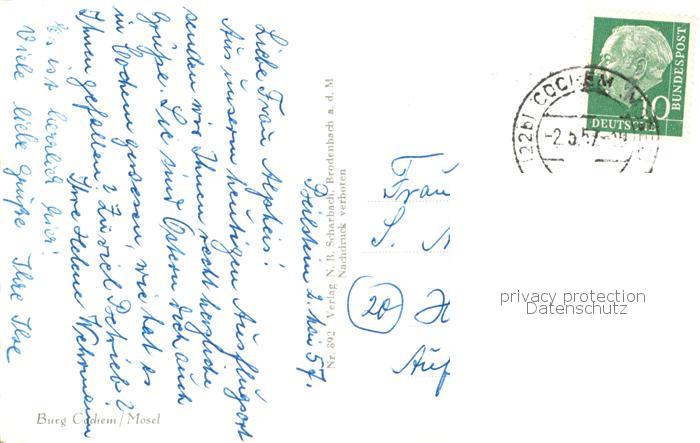 Beilstein 2. Mai 57.
Liebe Frau Alpheis!
Aus unserem heutigen Ausflugsort
senden wir Ihnen recht herzliche
Grüße. Sie sind Ostern doch auch
in Cochem gewesen, wie hat es
Ihnen gefallen? Zuviel Betrieb?
Ihre Helene Wehrmann
Es ist herrlich hier!
Viele liebe Grüße Ihre Ilse
Burg Cochem/Mosel
Nr. 892 Verlag N. B. Scharbach, Brodenbach a. d. M
Nachdruck verboten
DEUTSCHE
BUNDESPOST
10
(22b) COCHEM
-2.5.57
Frau
S.
20
Auf
privacy protection
Datenschutz